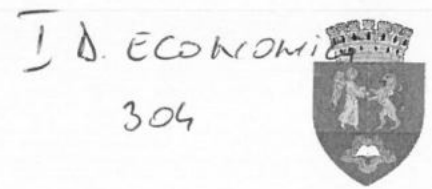 I D. ECONOMIC
304